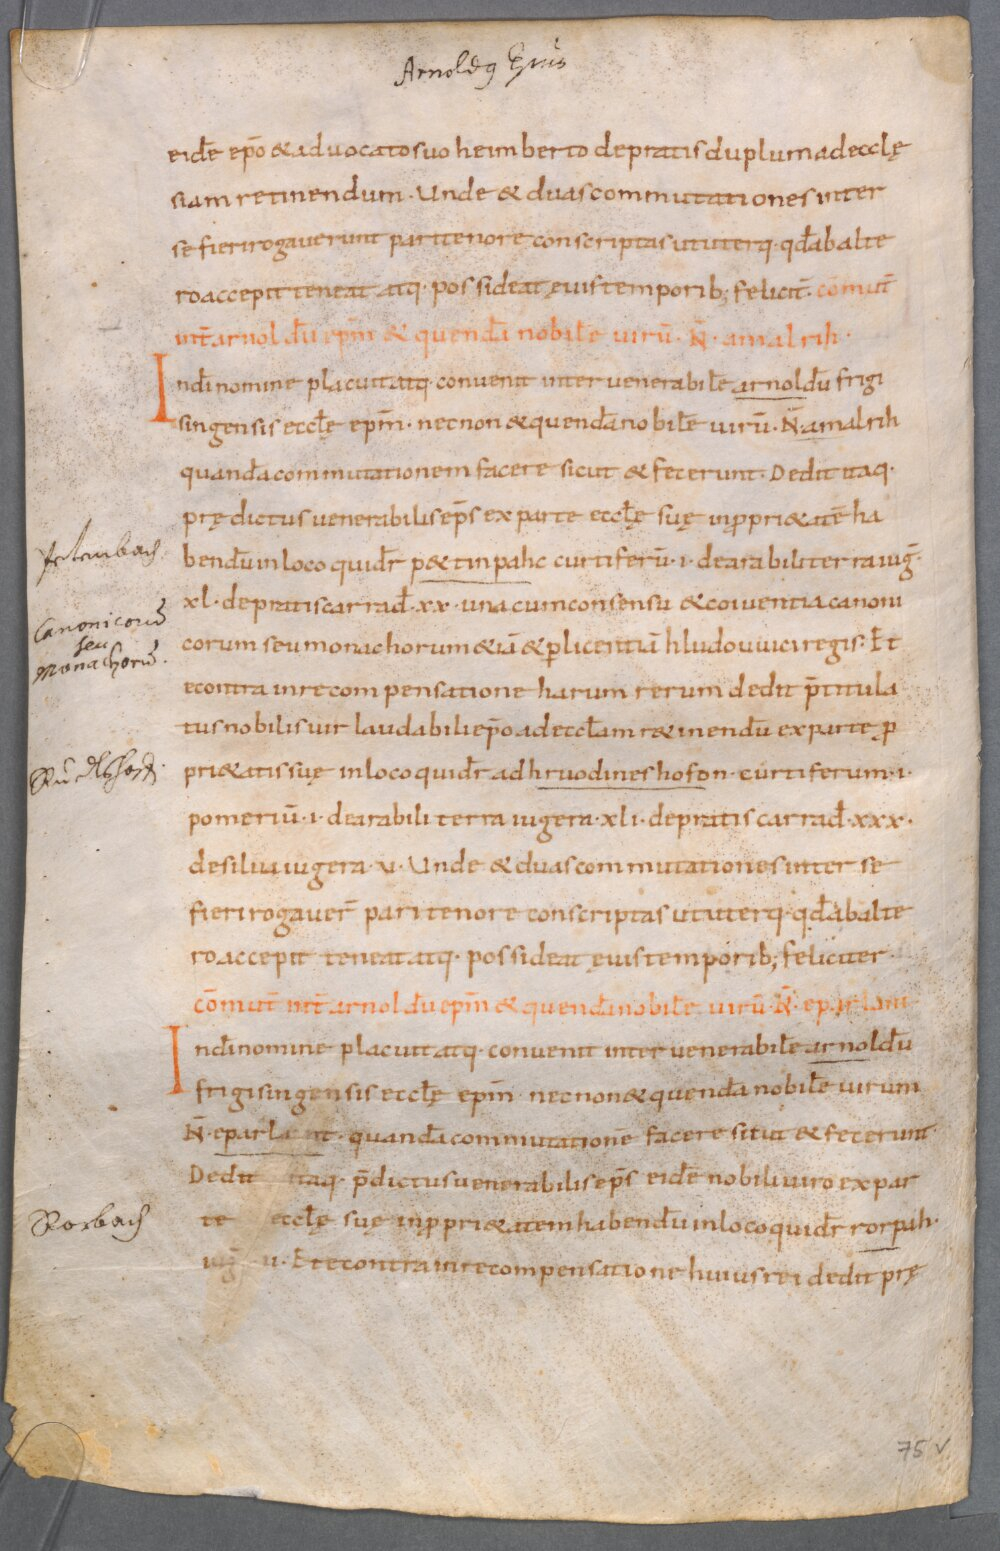 Arnoldꝯ Epus
eidē ep̄o & advocato suo heimberto de pratis duplum ad ecclę
siam retinendum · Unde & duas commutationes inter
se fieri rogaverunt pari tenore conscriptas ut uterq· qd̄ ab alte
ro accepit teneat atq· possideat ęvis temporib; felicit̄ · com̄ut̄
int̄ arnoldū ep̄m & quendā nobilē virū · N̄ · amalrih ·
In dī nomine placuit atq· convenit inter venerabilē arnoldū frigi
singensis ecclę̄ ep̄m · necnon & quendā nobilē virū · N̄ · amalrih
quandā commutationem facere sicut & fecerunt · Dedit itaq·
prędictus venerabilis ep̄s ex parte ecclę̄ suę in ꝓpri&atē ha
bendū in loco quidr̄ p&tinpahc curtiferū · i · de arabili terra iuḡ ·
xl · de pratis carrad̄ · xx · una cum consensu & coniventia canoni
corum seu monachorum & iā & ꝑ licentiā hludouuici regis · Et
econtra in recompensatione harum rerum dedit p̄titula
tus nobilis vir laudabili ep̄o ad eccl̄am r&inendū ex parte ꝓ
pri&atis suę in loco quidr̄ ad hruodineshofon · curtiferum · i ·
pomeriū · i · de arabili terra iugera · xli · de pratis carrad̄ · xxx ·
de silva iugera · v · Unde & duas commutationes inter se
fieri rogaver̄ pari tenore conscriptas ut uterq· qd̄ ab alte
ro accepit teneat atq· possideat ęvis temporib; feliciter ·
com̄ut̄ int̄ arnoldū ep̄m & quendā nobilē virū · N̄ · eparlant
In dī nomine placuit atq· convenit inter venerabilē arnoldū
frigisingensis ecclę̄ ep̄m necnon & quendā nobilē virum
N̄ · eparlant · quandā commutationē facere sicut & fecerunt
Dedit itaq· p̄dictus venerabilis ep̄s eidē nobili viro ex par
te ecclę̄ suę in ꝓpri&atem habendū in loco quidr̄ rorpah ·
iuḡ v · Et econtra in recompensatione huius rei dedit prę
Canonicorū
seu
Monachorū ·
Rorbach
75 v